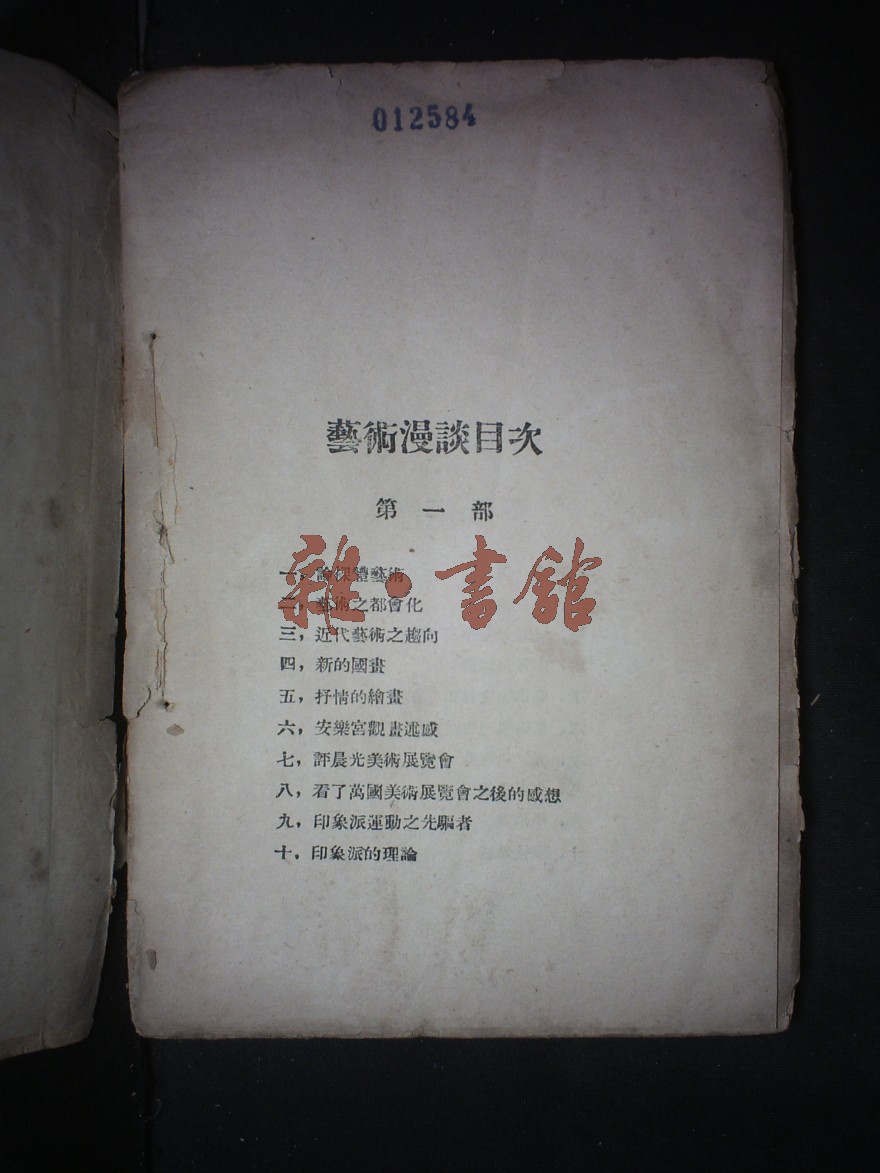 012584
藝術漫談目次
第一部
一，論裸體藝術
二，藝術之都會化
三，近代藝術之趨向
四，新的國畫
五，抒情的繪畫
六，安樂宮觀畫述感
七，評晨光美術展覽會
八，看了萬國美術展覽會之後的感想
九，印象派運動之先驅者
十，印象派的理論
雜·書館